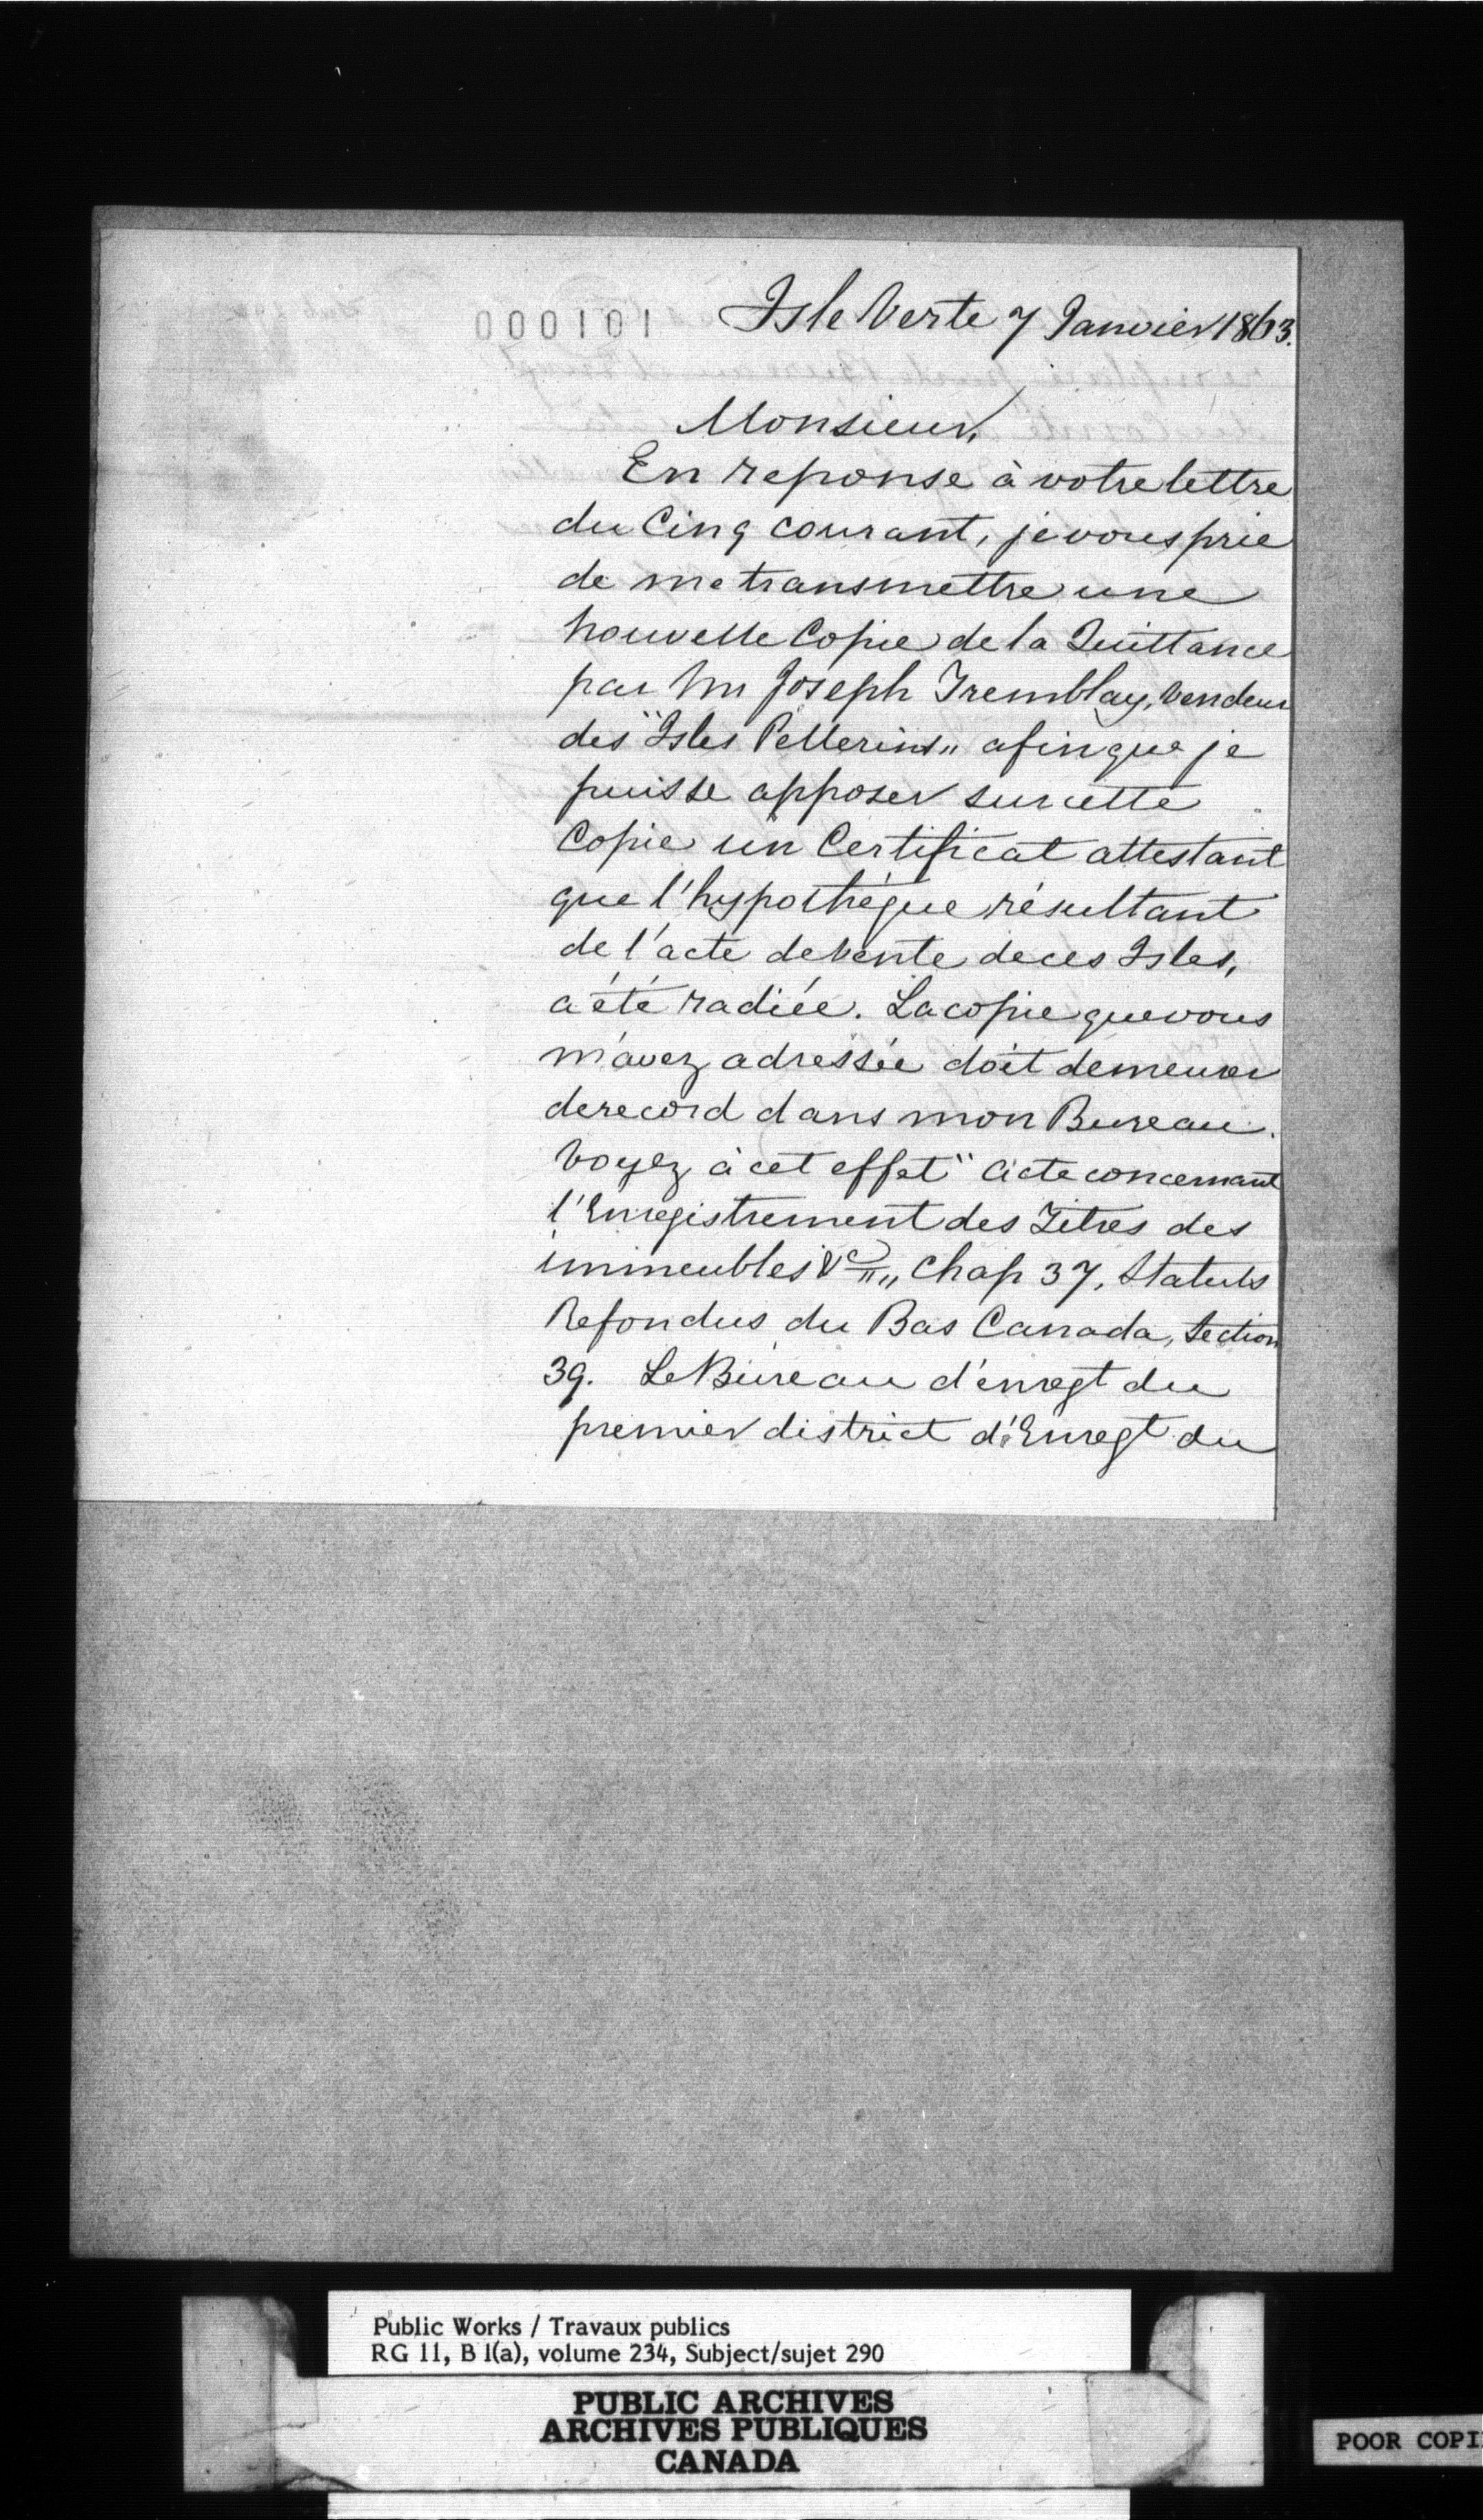 000101
Isle Verte 7 Janvier 1863.
Monsieur,
En reponse à votre lettre
du Cinq courant, je vous prie
de me transmettre une
nouvelle Copie de la Quittance
par Mr Joseph Tremblay, Vendeur
des "Isles Pellerins" afin que je
puisse apposer sur cette
Copie un Certificat attestant
que l'hypothèque résultant
de l'acte de Vente de ces Isles,
a été radiée. La copie que vous
m'avez adressée doit demeurer
de record dans mon Bureau.
Voyez à cet effet "Acte concernant
l'Enregistrement des Titres des
immeubles &c" Chap 37, Statuts
Refondus du Bas Canada, Section
39. Le Bureau d'enregt du
premier district d'Enregt du
Public Works / Travaux publics
RG 11, B 1(a), volume 234, Subject/sujet 290
PUBLIC ARCHIVES
ARCHIVES PUBLIQUES
CANADA
POOR COPI